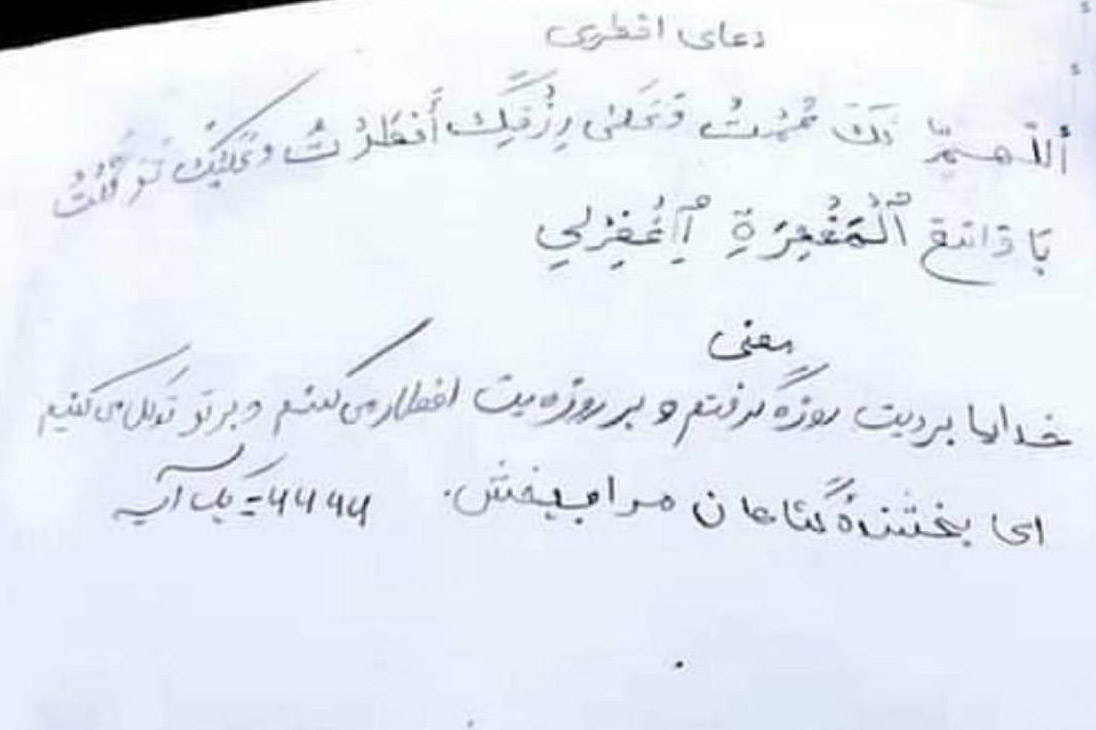 دعای افطری
أللَّهمَّ لَكَ صُمْتُ وَعَلىٰ رِزْقِكَ أَفْطَرْتُ وَعَلَيْكَ تَوَكَّلْتُ
يَا وَاسِعَ ٱلْمَغْفِرَةِ اِغْفِرْلِي
معنی
خدایا بردیت روزه گرفتم و بر روزه یت افطار می کنم و بر تو توکل می کنیم
ای بخشندهٔ گناهان مرا ببخش. ۶۶۶۶ = یک آیه